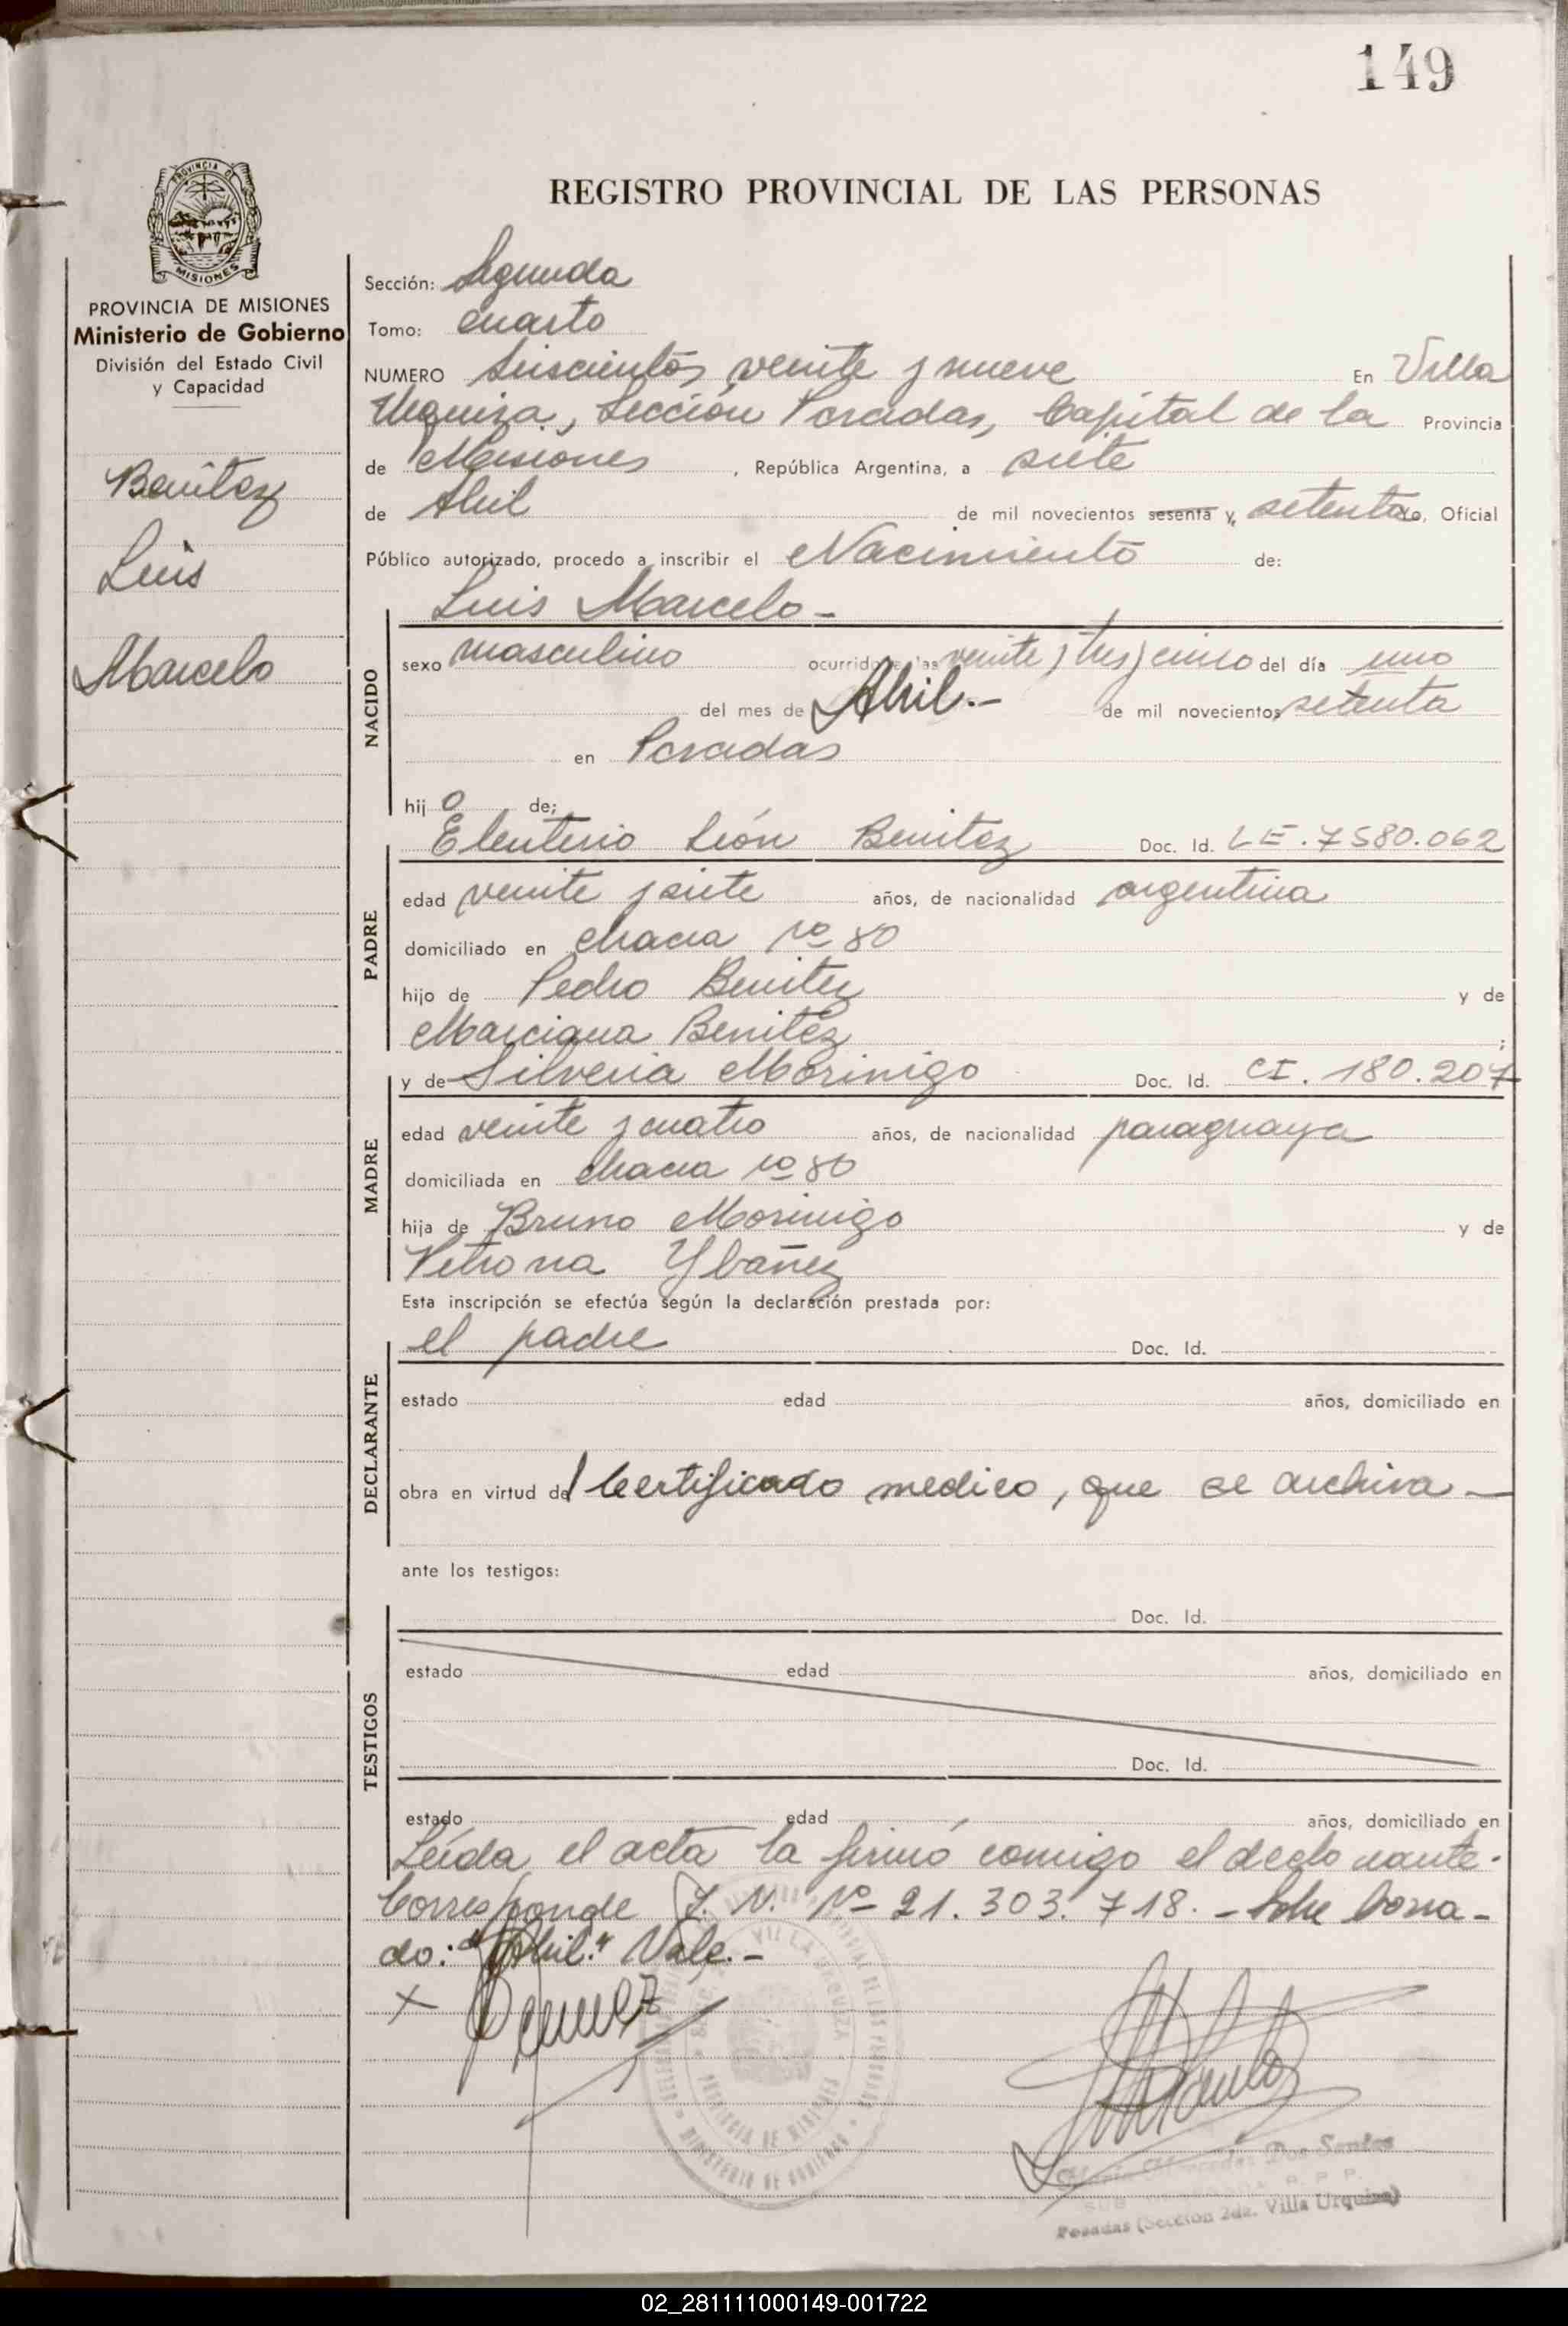 149
PROVINCIA DE
MISIONES
REGISTRO PROVINCIAL DE LAS PERSONAS
PROVINCIA DE MISIONES
Ministerio de Gobierno
División del Estado Civil
y Capacidad
Benítez
Luis
Marcelo
Sección: Segunda
Tomo: cuarto
NUMERO Seiscientos veinte y nueve En Villa
Urquiza, Sección Posadas, Capital de la Provincia
de Misiones, República Argentina, a siete
de Abril de mil novecientos sesenta y setenta, Oficial
Público autorizado, procedo a inscribir el Nacimiento de:
Luis Marcelo -
NACIDO
sexo masculino ocurrido a las veinte y tres y cinco del día uno
del mes de Abril.- de mil novecientos setenta
en Posadas
hij o de:
PADRE
Eleuterio León Benitez Doc. Id. LE. 7580.062
edad veinte y siete años, de nacionalidad argentina
domiciliado en chacra No 80
hijo de Pedro Benitez y de
Marciana Benitéz ;
MADRE
y de Silveria Morinigo Doc. Id. CI. 180.207
edad veinte y cuatro años, de nacionalidad paraguaya
domiciliada en chacra No 80
hija de Bruno Morinigo y de
Petrona Ybañez
Esta inscripción se efectúa según la declaración prestada por:
DECLARANTE
el padre Doc. Id.
estado edad años, domiciliado en
obra en virtud del Certificado medico, que se archiva -
ante los testigos:
TESTIGOS
Doc. Id.
estado edad años, domiciliado en
Doc. Id.
estado edad años, domiciliado en
Leída el acta la firmó comigo el declarante.
Corresponde J. N. No 21.303.718. - Sobre borra-
do: "Abril." Vale.-
x
VILLA URQUIZA
PROVINCIA DE MISIONES
MINISTERIO DE GOBIERNO
Dos Santos
Posadas (Sección 2da. Villa Urquiza)
02_281111000149-001722